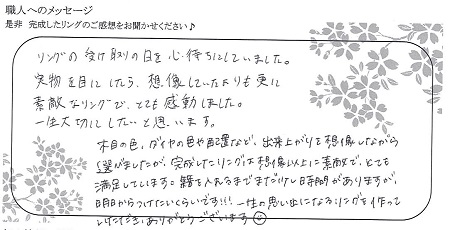 職人へのメッセージ
是非 完成したリングのご感想をお聞かせください♪
リングの受け取りの日を心待ちにしていました。
実物を目にしたら、想像していたよりも更に
素敵なリングで、とても感動しました。
一生大切にしたいと思います。
木目の色、ダイヤの色や配置など、出来上がりを想像しながら
選びましたが、完成したリングは想像以上に素敵で、とても
満足しています。籍を入れるまでまだ少し時間がありますが、
明日からつけたいくらいです!!! 一生の思い出になるリングを作って
いただき、ありがとうございます